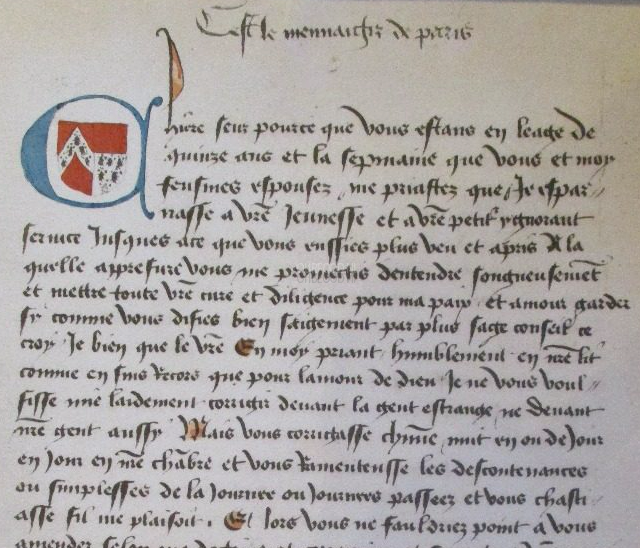 Cest le mennaigier de paris
Chiere seur pource que vous estans en leage de
quinze ans et la sepmaine que vous et moy
feusmes espousez me priastes que Je espar-
nasse a vrē Jeunesse et a vrē petit et ygnorant
seruice Jusques ace que vous eussies plus veu et apris A la
quelle appresure vous me promectis dentendre songneusemēt
et mettre toute vrē cure et diligence pour ma paix et amour garder
sy comme vous disies bien saigement par plus sage conseil ce
croy Je bien que le vrē En moy priant humblement en nrē lit
comme en suis recors que pour lamour de dieu Je ne vous voul-
sisse mie lardement corrigir deuant la gent estrange ne deuant
nrē gent aussy Mais vous corrigasse chūne nuit ou de Jour
en Jour en nrē chābre et vous ramenteusse les descontenances
ou simplesses de la Journee ou Journees passeez et vous chasti-
asse sil me plaisoit. Et lors vous ne fauldriez point a vous
amender selon